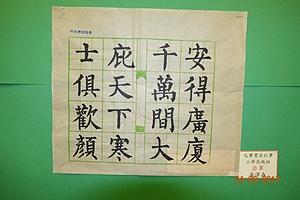 安得廣廈
千萬間大
庇天下寒
士俱歡顏
毛筆書法比賽
小學高級組
亞軍